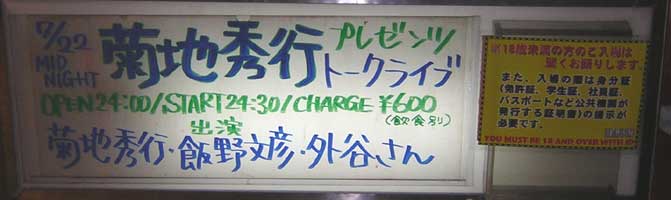 7/22
MID NIGHT
菊地秀行 プレゼンツ
トークライブ
OPEN24:00/START24:30/CHARGE ¥600
(飲食別)
出演
菊地秀行・飯野文彦・外谷さん
※18歳未満の方のご入場は
堅くお断りします。
また、入場の際は身分証
(免許証、学生証、社員証、
パスポートなど公共機関が
発行する証明書)の提示が
必要です。
YOU MUST BE 18 AND OVER WITH ID